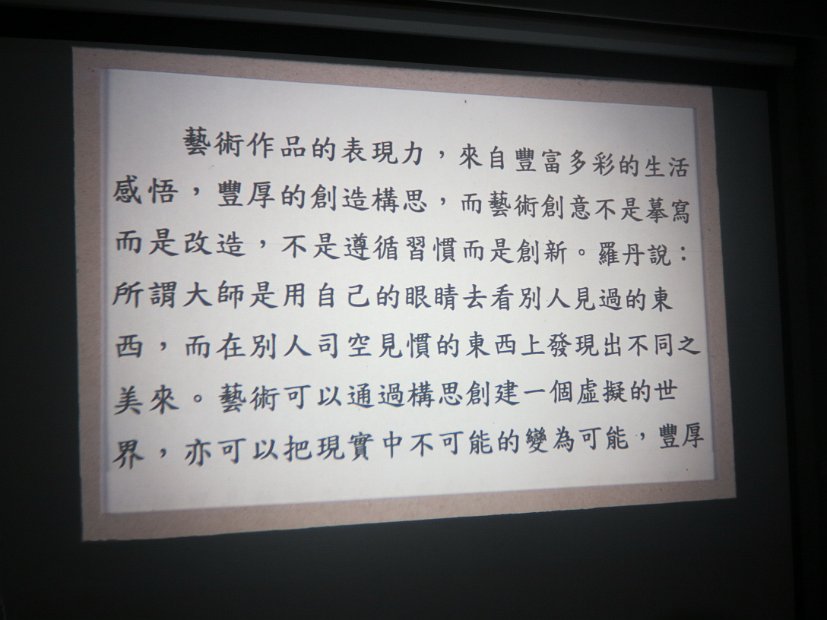 藝術作品的表現力，來自豐富多彩的生活
感悟，豐厚的創造構思，而藝術創意不是摹寫
而是改造，不是遵循習慣而是創新。羅丹說：
所謂大師是用自己的眼睛去看別人見過的東
西，而在別人司空見慣的東西上發現出不同之
美來。藝術可以通過構思創建一個虛擬的世
界，亦可以把現實中不可能的變為可能，豐厚